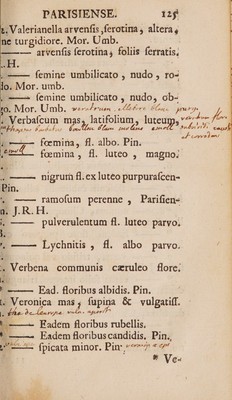 PARISIENSE. 125
t. Valerianella arvensis, serotina, altera,
ne turgidiore. Mor. Umb.
—— arvensis serotina, foliis serratis.
. H.
—— semine umbilicato, nudo, ro-
lo. Mor. umb.
—— semine umbilicato, nudo, ob-
o. Mor. Umb.
. Verbascum mas, latifolium, luteum,
bouillon blanc
—— fœmina, fl. albo. Pin.
—— fœmina, fl. luteo, magno.
—— nigrum fl. ex luteo purpurascen-
Pin.
—— ramosum perenne, Parisien-
n. J.R.H.
—— pulverulentum fl. luteo parvo.
—— Lychnitis, fl. albo parvo.
. Verbena communis cæruleo flore.
—— Ead. floribus albidis. Pin.
. Veronica mas, supina & vulgatiss.
—— Eadem floribus rubellis.
—— Eadem floribus candidis. Pin.
—— spicata minor. Pin.
* Ve-